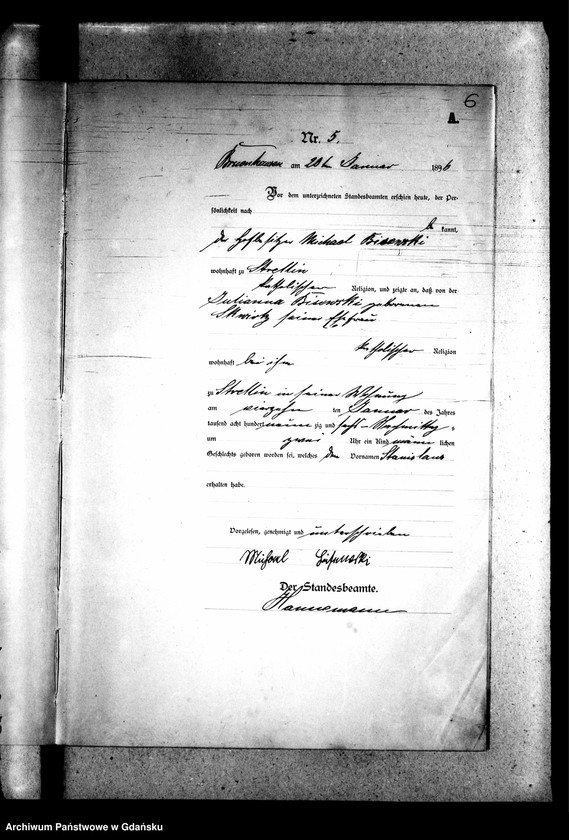 6
A.
Nr. 5.
am 20 t Januar 1896
Vor dem unterzeichneten Standesbeamten erschien heute, der Per-
sönlichkeit nach
kannt,
Michael
wohnhaft zu Strellin
katholischer Religion, und zeigte an, daß von der
Julianna geborenen
seiner Ehefrau
katholischer Religion
wohnhaft bei ihm
zu Strellin in seiner Wohnung
am vierzehn ten Januar des Jahres
tausend acht hundert neun zig und sechs Nachmittags
um zwei Uhr ein Kind männ lichen
Geschlechts geboren worden sei, welches den Vornamen Stanislaus
erhalten habe.
Vorgelesen, genehmigt und unterschrieben
Michael
Der Standesbeamte.
Hannemann
Archiwum Państwowe w Gdańsku